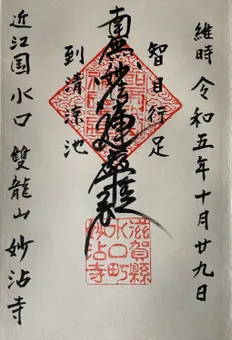 維時 令和五年十月廿九日
智目行足
南無妙法蓮華経
到清涼池
近江国 水口 雙龍山 妙沾寺
滋賀縣
水口町
妙沾寺